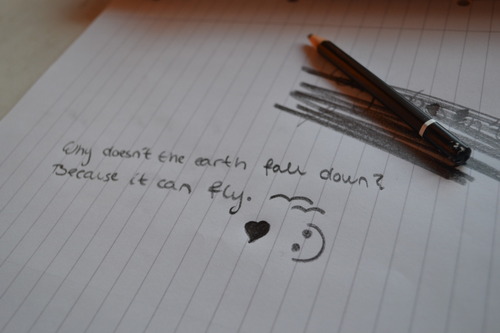 Why doesn't the earth fall down?
Because it can fly.